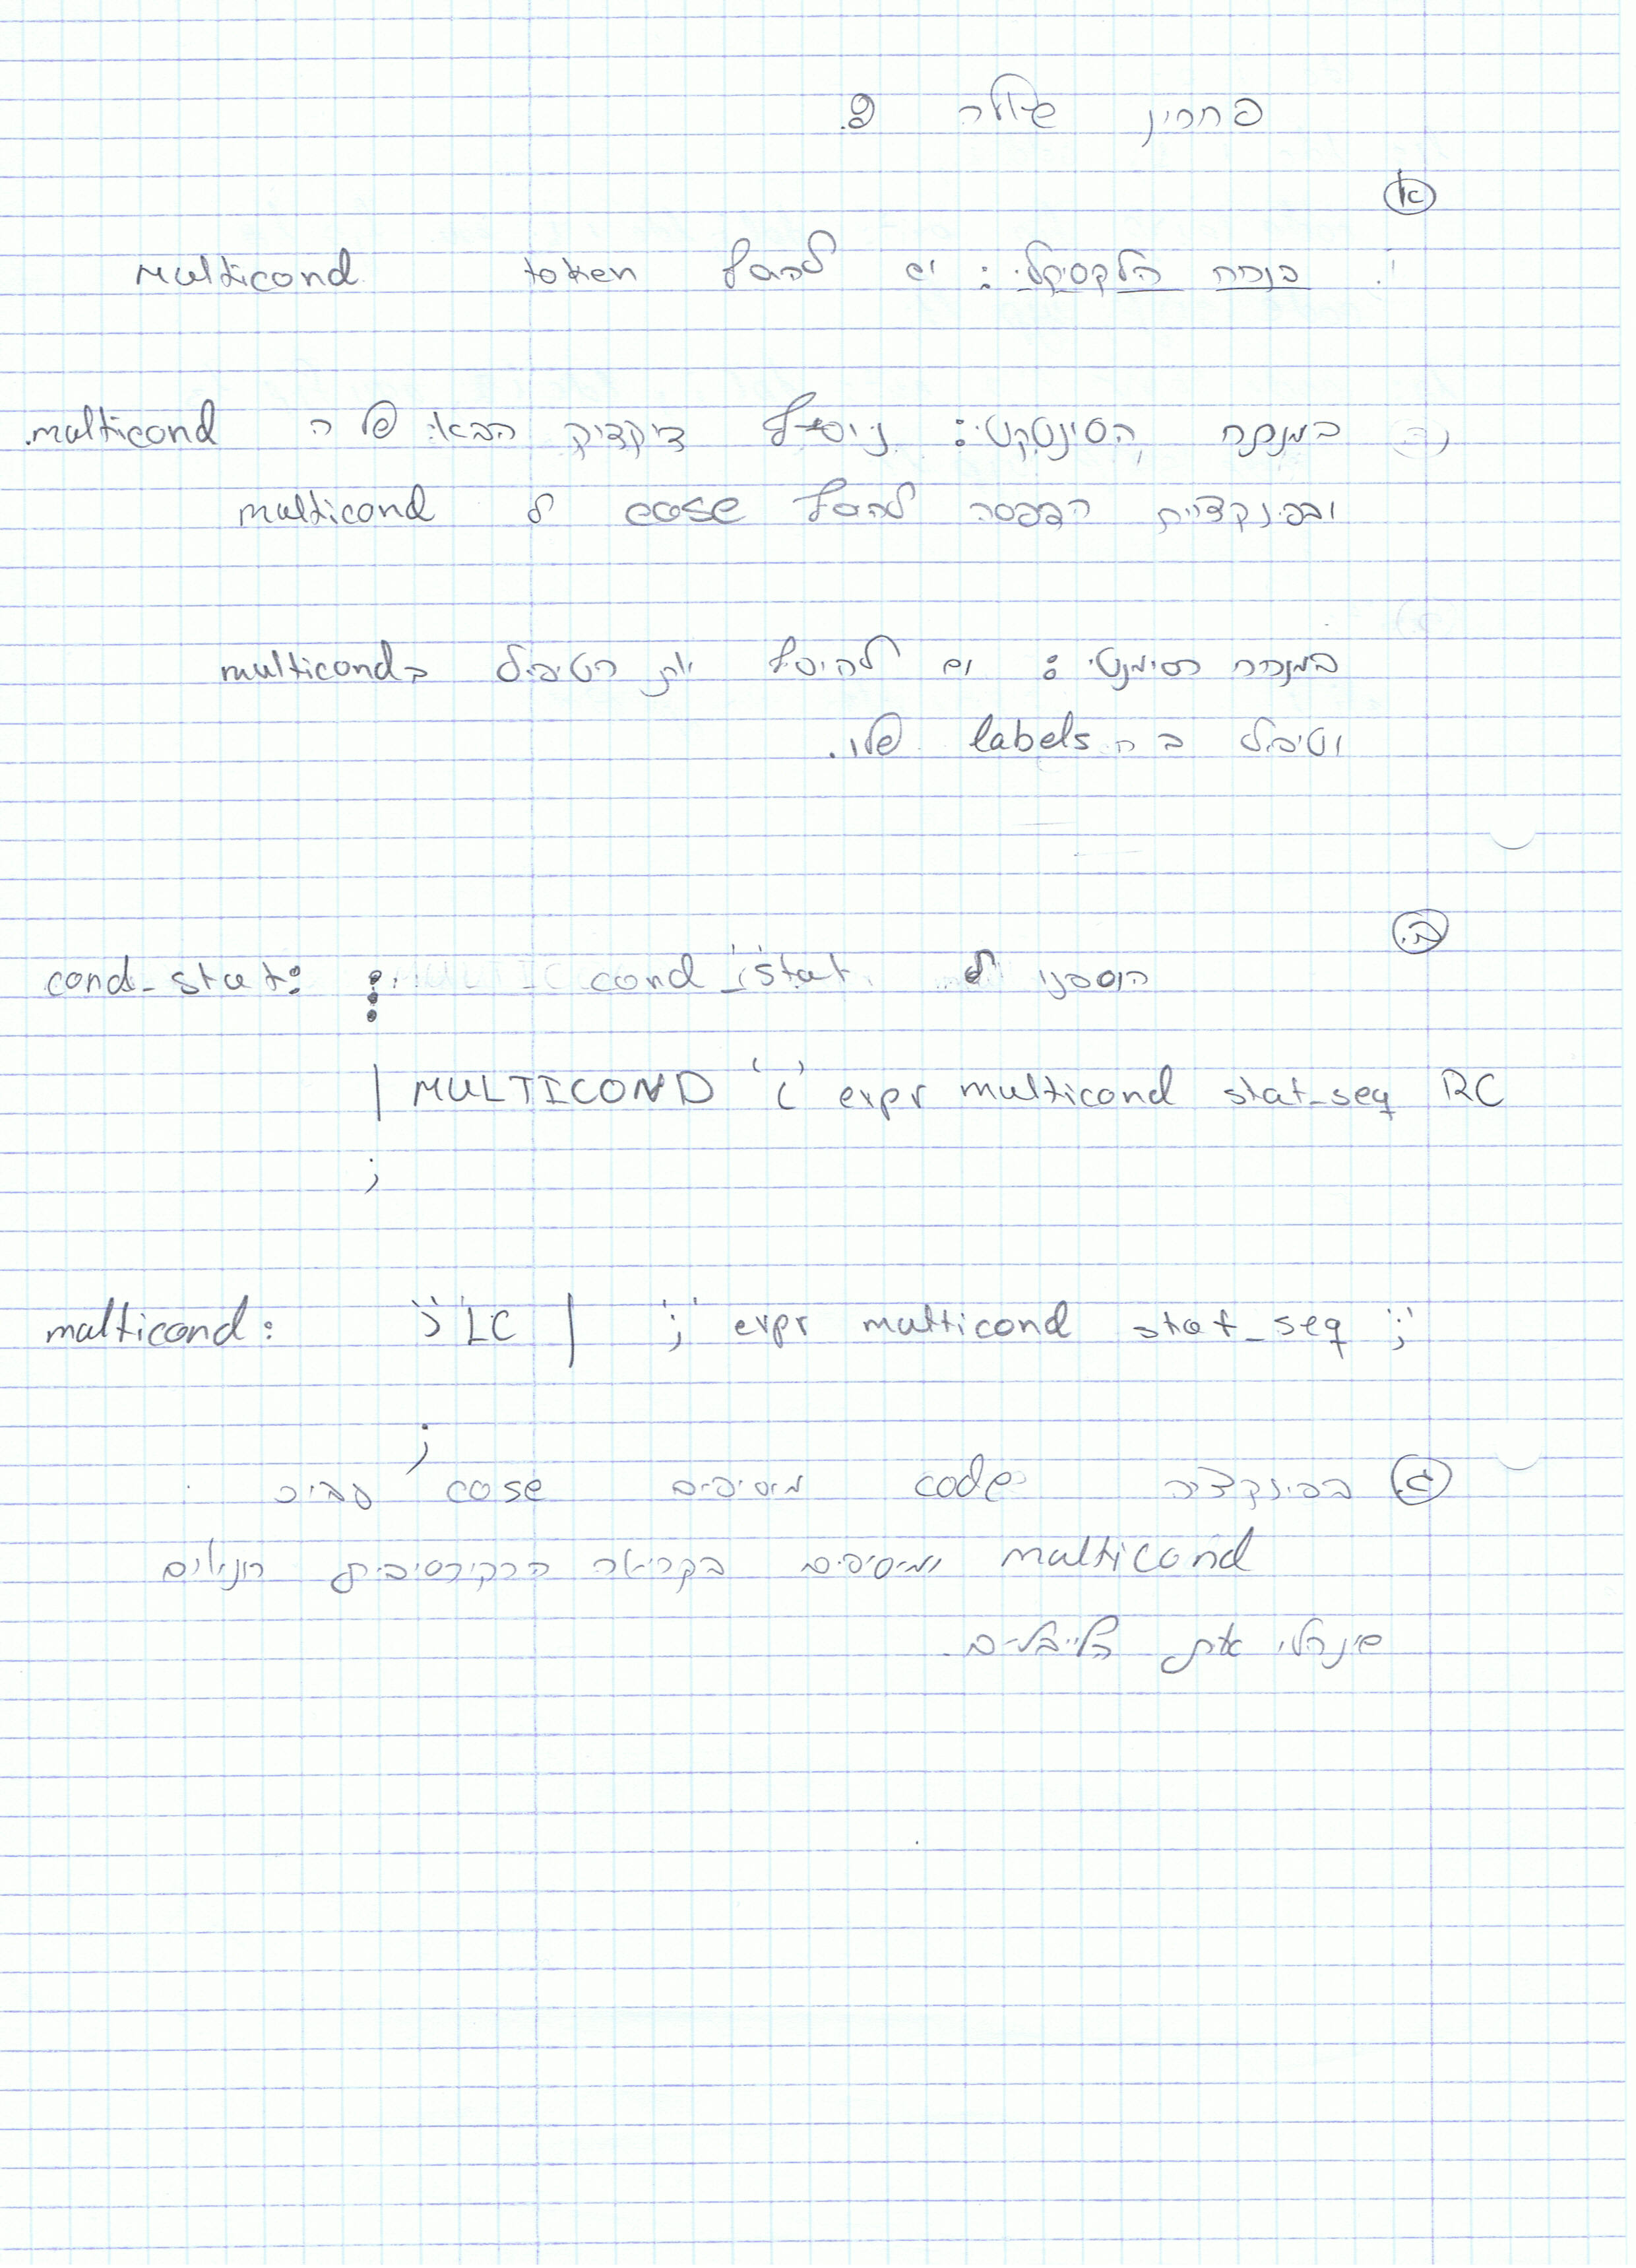 פתרון שאלה 9.
א
בנתח הלקסיקלי: יש להוסיף token multicond
במנתח הסינטקטי: נוסיף דיקדיק הבא של ה multicond.
ובפונקציית הדפסה להוסיף case ל multicond
במנתח הסימנטי: יש להוסיף את הטיפול בmulticond
וטיפול ב ה labels שלו.
ב.
הוספנו ל cond_stat
cond_stat: ⋮
| MULTICOND '(' expr multicond stat_seq RC
;
multicond: ')' LC | ';' expr multicond stat_seq ';'
;
ג. בפונקציה code מוסיפים case עבור
multicond ומוסיפים בקריאה הרקורסיבית תנאים
שינהלו את הלייבלים.